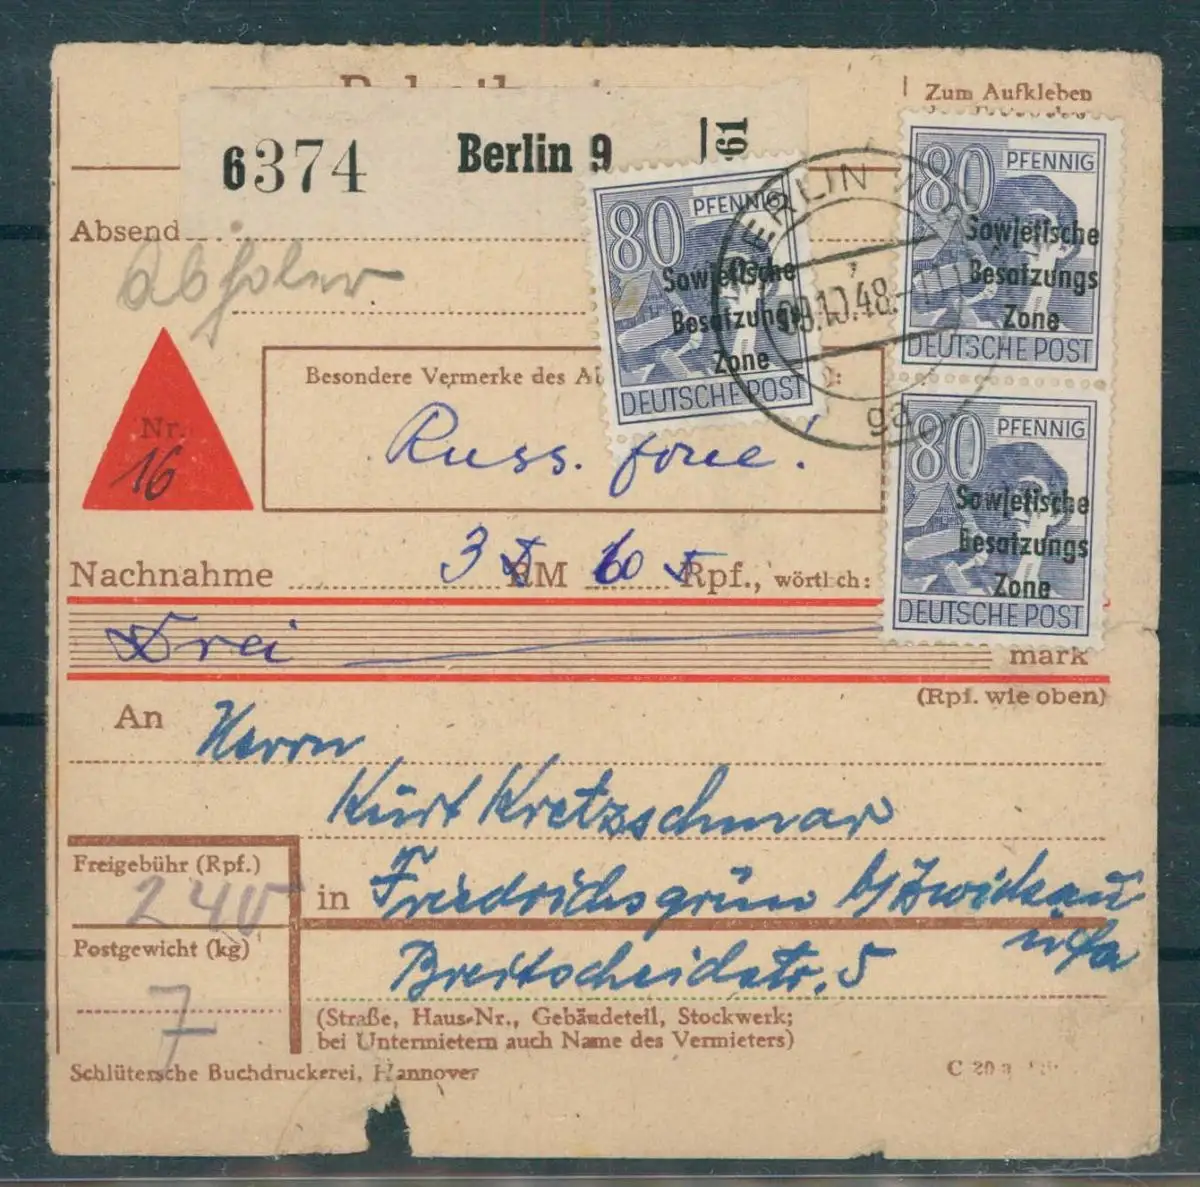 Zum Aufkleben
6374 Berlin 9 61
Absend
Abholer
80 PFENNIG
Sowjetische
Besatzungs
Zone
DEUTSCHE POST
80 PFENNIG
Sowjetische
Besatzungs
Zone
DEUTSCHE POST
80 PFENNIG
Sowjetische
Besatzungs
Zone
DEUTSCHE POST
BERLIN
10.48
9a
Besondere Vermerke des Ab
Russ. Zone!
Nr.
16
Nachnahme 3 DM 60 Rpf., wörtlich:
Drei mark
(Rpf. wie oben)
An Herrn
Kurt Kretzschmar
Freigebühr (Rpf.)
240
in Friedrichsgrün b/Zwickau
i/Sa
Postgewicht (kg)
7
Breitscheidstr. 5
(Straße, Haus-Nr., Gebäudeteil, Stockwerk;
bei Untermietern auch Name des Vermieters)
Schlütersche Buchdruckerei, Hannover
C 20 a